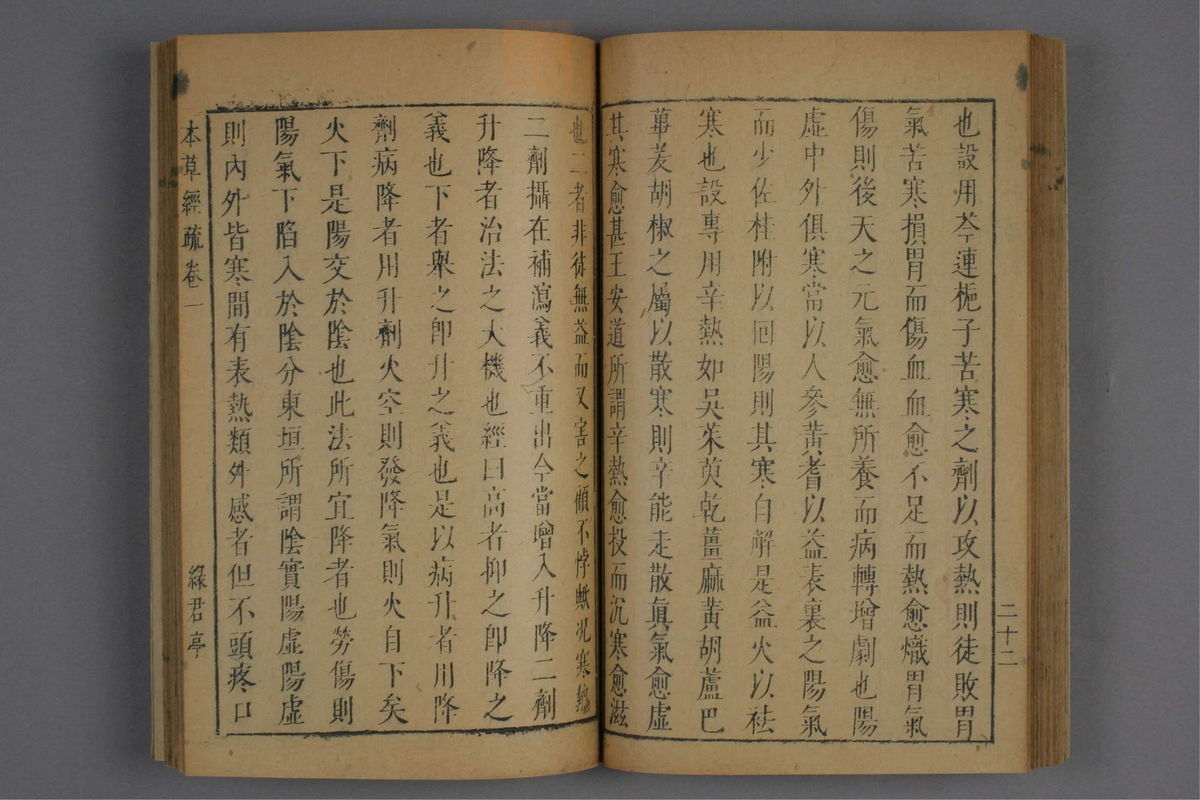 二十二
也設用芩連梔子苦寒之劑以攻熱則徒敗胃
氣苦寒損胃而傷血血愈不足而熱愈熾胃氣
傷則後天之元氣愈無所養而病轉增劇也陽
虛中外俱寒當以人參黃耆以益表裏之陽氣
而少佐桂附以回陽則其寒自解是益火以祛
寒也設專用辛熱如吳茱萸乾薑麻黃胡蘆巴
蓽茇胡椒之屬以散寒則辛能走散眞氣愈虛
其寒愈甚王安道所謂辛熱愈投而沉寒愈滋
也二者非徒無益而又害之顧不悖歟況寒
二劑攝在補瀉義不重出今當增入升降二劑
升降者治法之大機也經曰高者抑之卽降之
義也下者舉之卽升之義也是以病升者用降
劑病降者用升劑火空則發降氣則火自下矣
火下是陽交於陰也此法所宜降者也勞傷則
陽氣下陷入於陰分東垣所謂陰實陽虛陽虛
則內外皆寒間有表熱類外感者但不頭疼口
本草經疏卷一
綠君亭